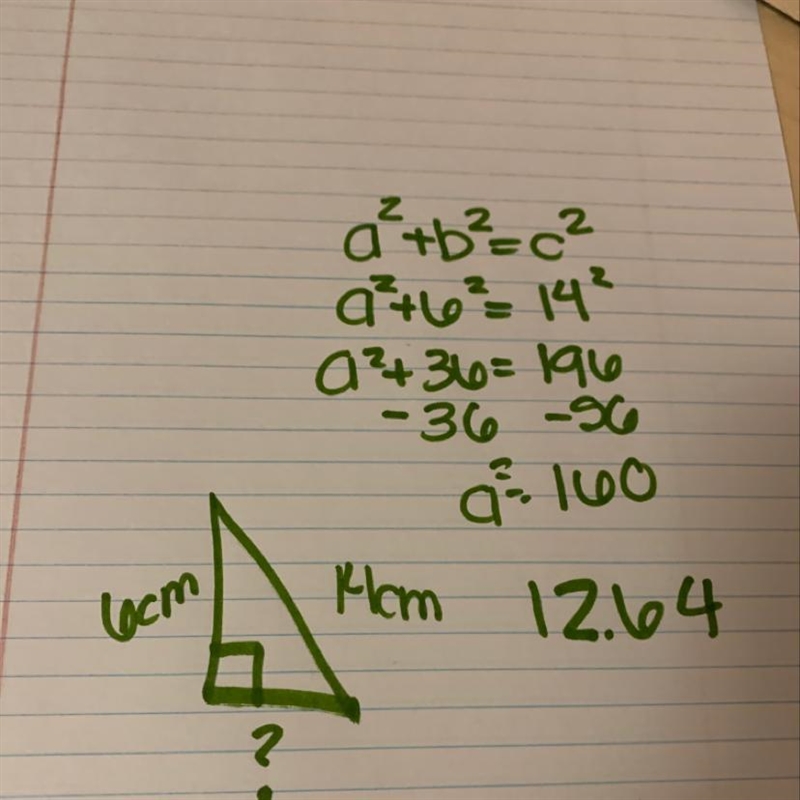 a²+b²=c²
a²+6²=14²
a²+36=196
-36 -36
a²=160
6cm 14cm 12.64
?